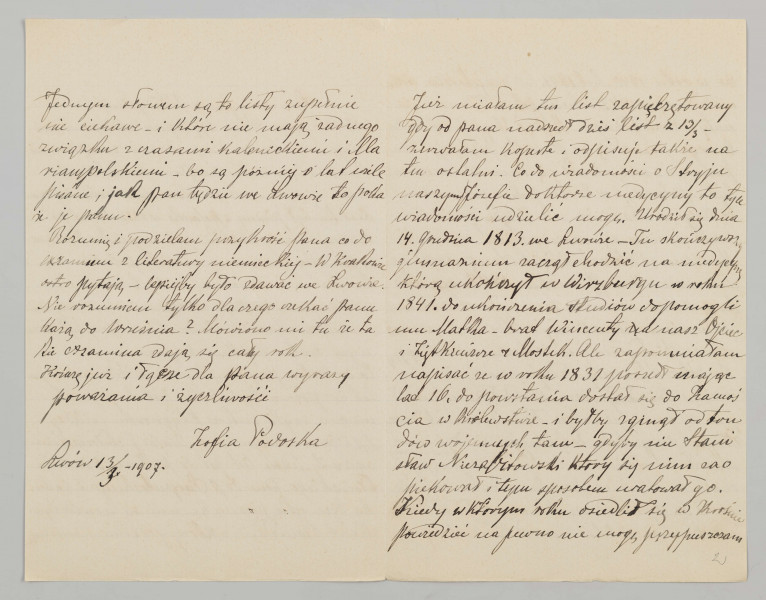 Jednym słowem są to listy zupełnie
nie ciekawe – i które nie mają żadnego
związku z czasami
– bo są pózniej o lat wiele
pisane; jak pan będzie we Lwowie to poka
że je panu.
Rozumię i podzielam przykrość pana co do
examinu z literatury niemieckiej – W Krakowie
ostro pytają – lepiejby było zdawać we Lwowie.
Nie rozumiem tylko dlaczego czekać panu
każą do Września? Mówiono mi tu że ta
kie examina zdają się cały rok.
Kończę już i łączę dla pana wyrazy
poważania i życzliwości
Zofia Podoska
Lwów 13/3 – 1907.
Już miałam ten list zapieczętowany
gdy od pana nadszedł dziś list z 13/3 –
zerwałam kopertę i odpisuję także na
ten ostatni. Co do wiadomości o Stryju
naszym Józefie doktorze medycyny to tyle
wiadomości udzielić mogę. Urodził się dnia
14. Grudnia 1813. we Lwowie – Tu skończywszy
gimnazium zaczął chodzić na medycynę
którą ukończył w Wirzburgu w roku
1841. do ukończenia studiów dopomogli
mu Matka – brat Wincenty nasz Ojciec
i Mostek. Ale zapomniałam
napisać że w roku 1831 mając
lat 16. do powstania dostał się do Zamoś
cia w Królewstwie – i byłby zginął od tru
dów wojennych tam – gdyby nie Stani
sław Niezabitowski który się nim zao
piekował i tym sposobem uratował go.
Kiedy w którym roku osiedlił się w
powiedzieć na pewno nie mogę, przypuszczam
2)